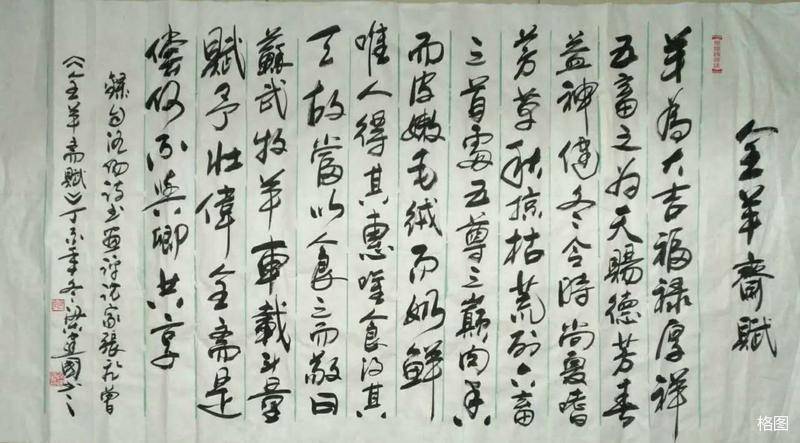 全羊斋赋
羊为大吉福禄厚祥
五畜之为天赐德芳春
益神健冬令时尚夏嗜
芳草秋掠枯荒列六畜
之首处五尊之巅肉
而皮嫩毛绒而奶鲜
唯人得其惠唯食得其
天故当以食之而敬曰
苏武牧羊车载斗量
赋予壮伟全斋是
偿何不与卿共享
录自洛阳诗书画评论家张
《全羊斋赋》丁酉年冬梁建国书
格图